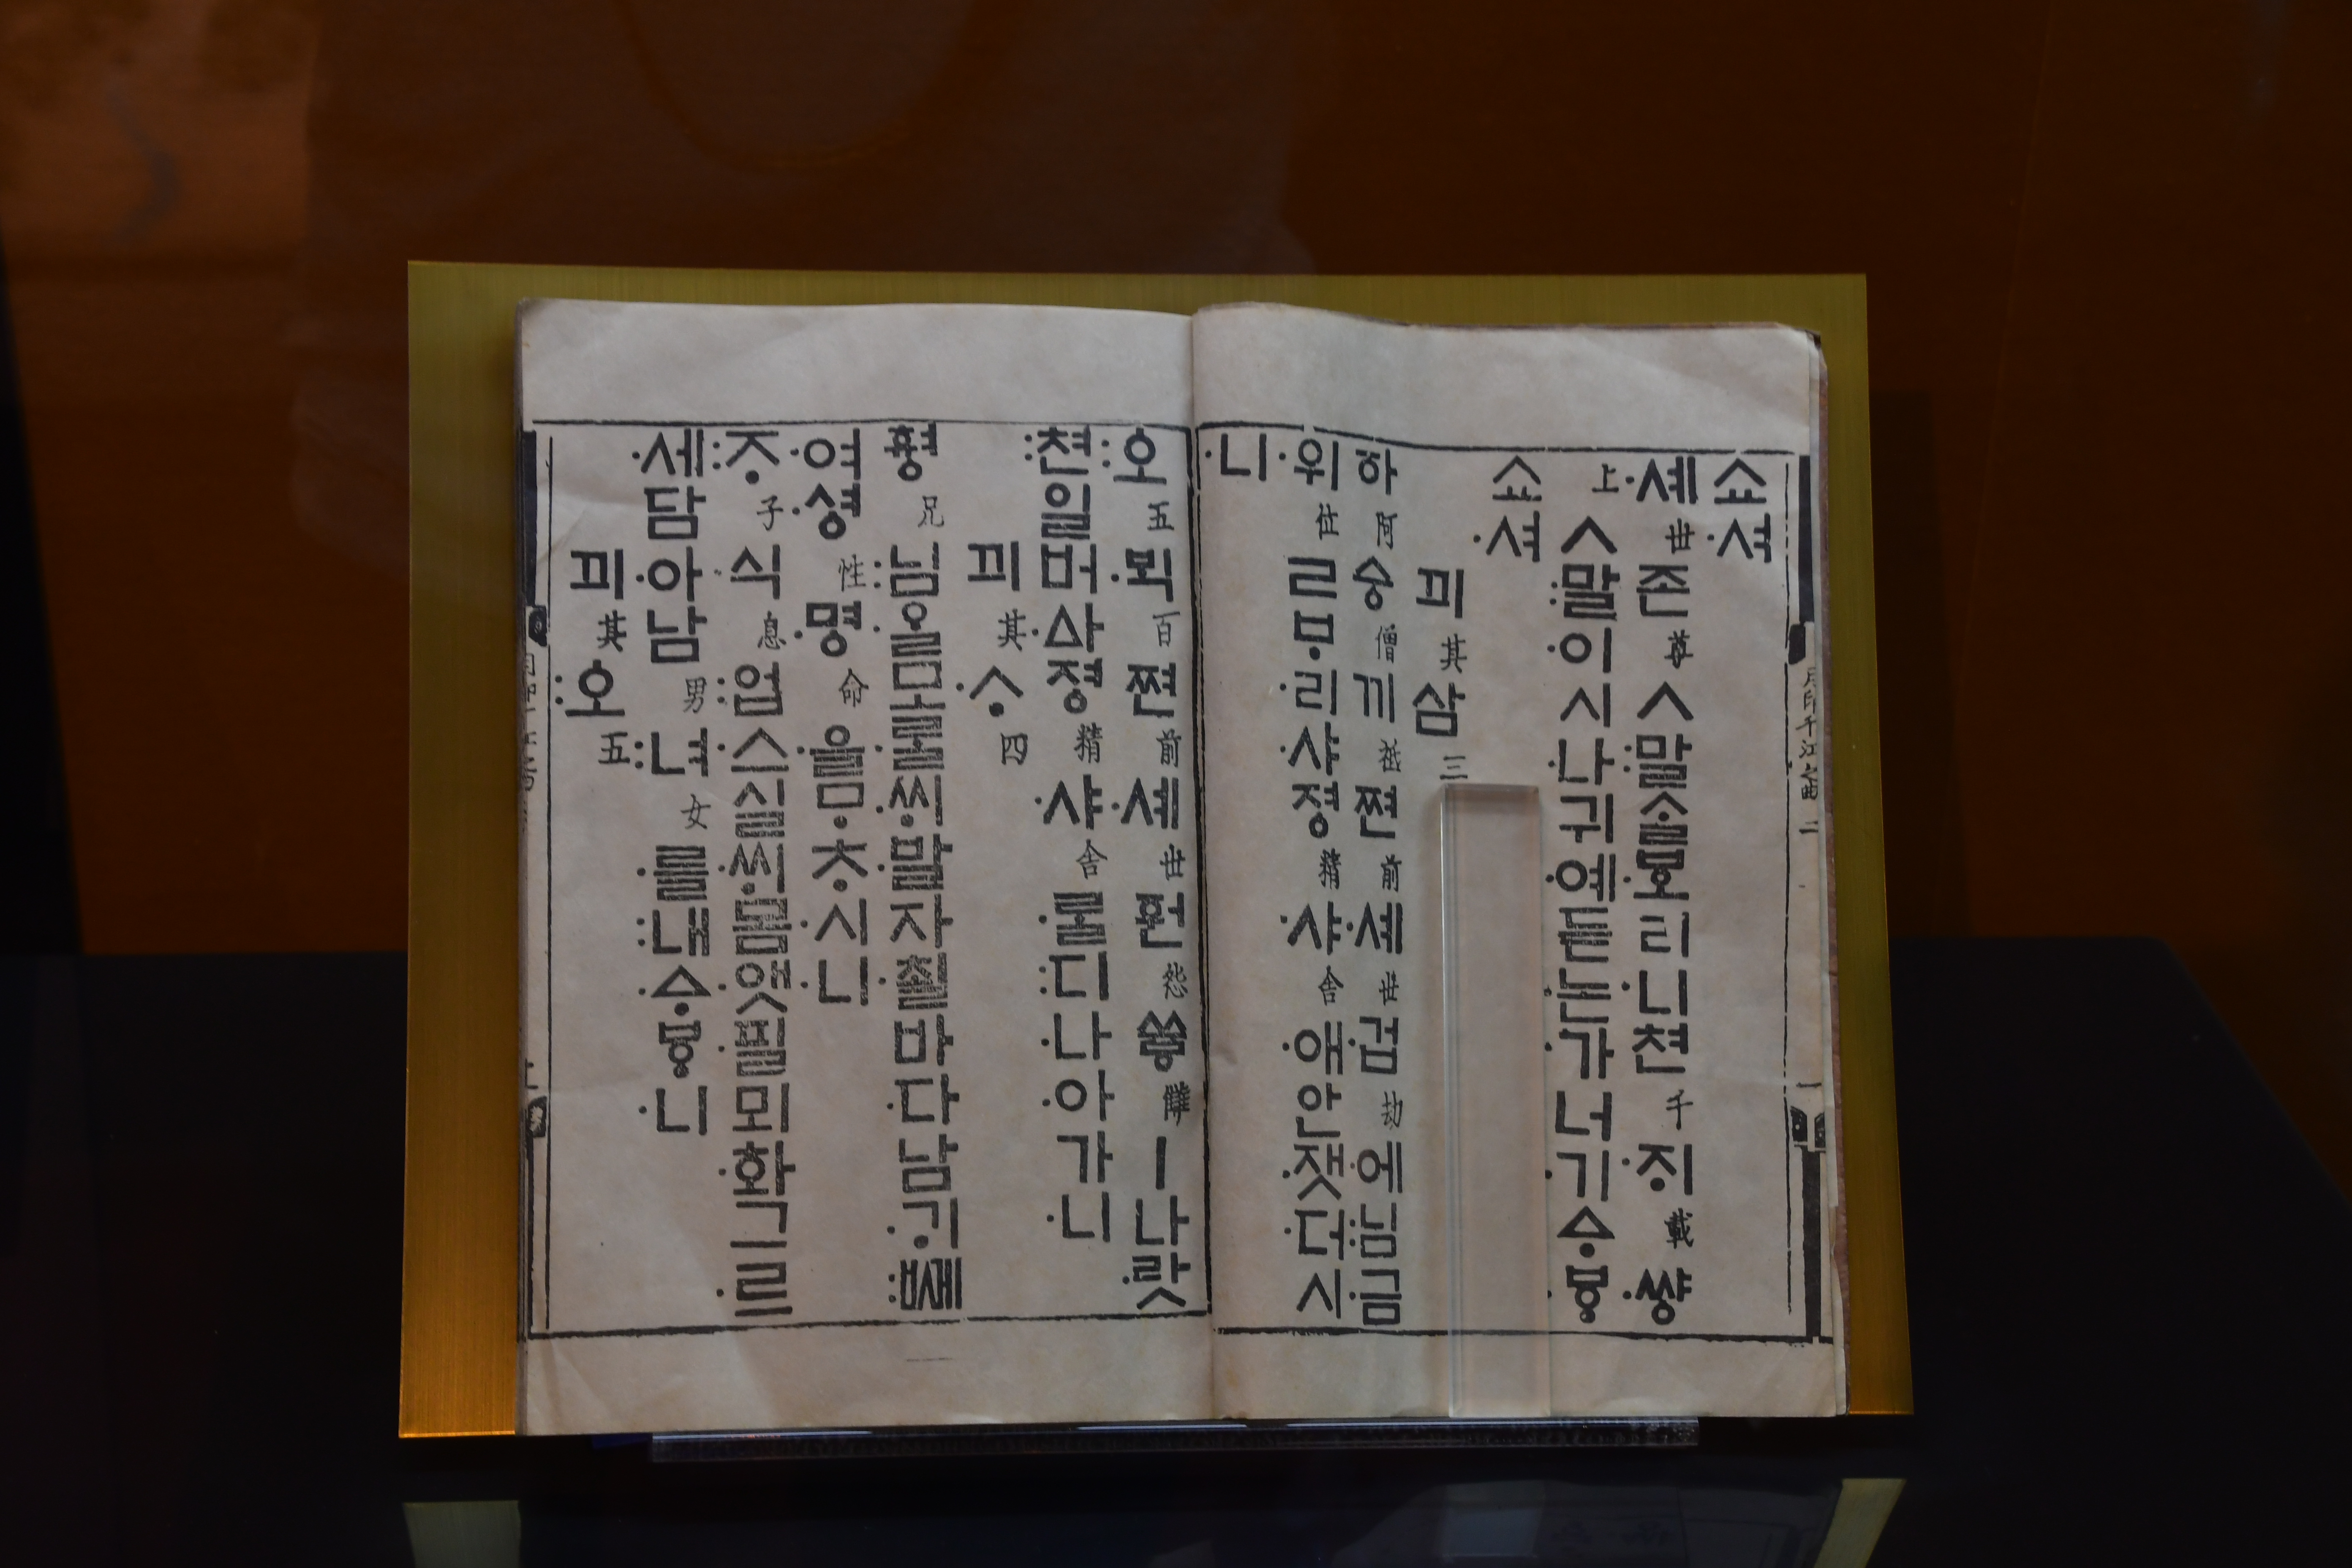 쇼·셔
·셰世존尊ㅅ:말ᄉᆞᆯ·ᄫᅩ리·니쳔千·ᄌᆡ載·썅
上ㅅ:말·이시·나귀·예듣·논·가너·기ᅀᆞ·ᄫᆞ
쇼·셔
끠其삼三
하阿승僧끼祇쪈前·셰世·겁劫·에:님금
·위位ㄹᄇᆞ·리·샤졍精·샤舍·애안·잿·더시
·니
月印千江之曲 二
:오五·ᄇᆡᆨ百쪈前·셰世ᅙᅯᆫ怨쓩讎ㅣ나·랏
:쳔일버·ᅀᅡ졍精·샤舍·ᄅᆞᆯ:디·나·아가·니
끠其·ᄉᆞ四
ᅘᅧᇰ兄:님·을모·ᄅᆞᆯ·ᄊᆡ·발자·쵤바·다남·ᄀᆡ:ᄢᅦ
·여·셩性·명命·을ᄆᆞ·ᄎᆞ·시·니
:ᄌᆞ子·식息:업·스·실·ᄊᆡ·몸·앳·필뫼·화그·르
·세담·아남男:녀女·를:내·ᅀᆞᄫᆞ·니
끠其:오五